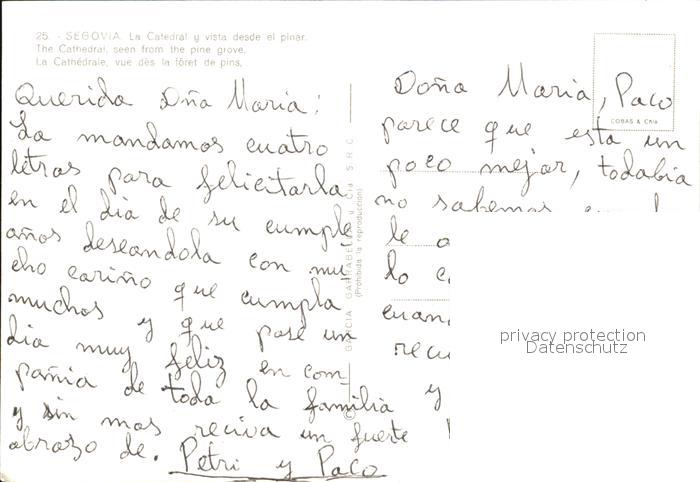 25. - SEGOVIA. La Catedral y vista desde el pinar.
The Cathedral, seen from the pine grove.
La Cathédrale, vue dès la fôret de pins.
Querida Dña Maria:
La mandamos cuatro
letras para felicitarla
en el dia de su cumple
años deseandola con mu
cho cariño que cumpla
muchos y que pase un
dia muy feliz en com_
pañia de toda la familia
y sin mas reciva un fuerte
abrazo de. Petri y Paco
© GARCIA GARRABELLA y Cía S.R.C.
(Prohibida la reproducción)
COBAS & CNIA
Doña Maria, Paco
parece que esta un
poco mejor, todabia
no sabemos
le
lo
cuan
recu
y
privacy protection
Datenschutz